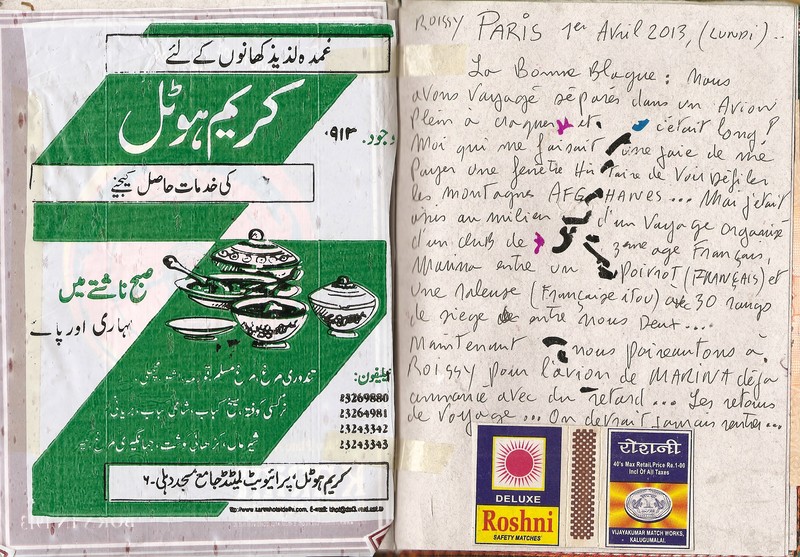 عمدہ لذیذ کھانوں کے لئے
کریم ہوٹل
وجود.
۰۹۱۳
کی خدمات حاصل کیجئے
صبح ناشتے میں
نہاری اور پائے
تندوری مرغ، مرغ مسلم
23269880
23264981
23243342
23243343
کریم ہوٹل پرائیویٹ لمیٹڈ جامع مسجد دہلی-۶
ROISSY PARIS 1er Avril 2013, (LUNDI)..
La Bonne Blague : Nous
avons Voyagé séparés dans un Avion
Plein à craquer et c'était long!
Moi qui me faisait une joie de me
Payer une fenêtre de Voir Défiler
les montagnes AFGHANES... Moi j'était
assis au milieu d'un Voyage organisé
d'un club de 3eme age Français,
Marina entre un POIVROT (FRANÇAIS) et
une raleuse (Française itou) avec 30 rangs
de siege entre nous Deux....
Maintenant nous poireautons à
ROISSY pour l'avion de MARINA déjà
annoncé avec du retard... Les retours
de Voyage... On devrait jamais rentrer...
DELUXE
Roshni
SAFETY MATCHES
रोशनी
40's Max Retail, Price Re.1-00
Incl Of All Taxes
VIJAYAKUMAR MATCH WORKS,
KALUGUMALAI.